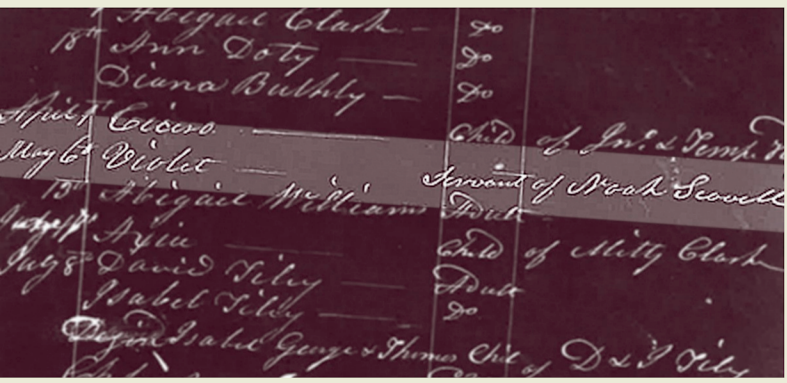 Abigail Clark — Do
18th Ann Doty — Do
Diana Bulkly — Do
April 1st Cicero — Child of Jno. & Temp.
May 6th Violet — Servant of Noah Scovell
13th Abigail Williams Adult
— Child of Mitty Clark
July 8th David Tiley — Adult
Isabel Tilly — Do
Isabel George & Thomas Chil of D & I Tily